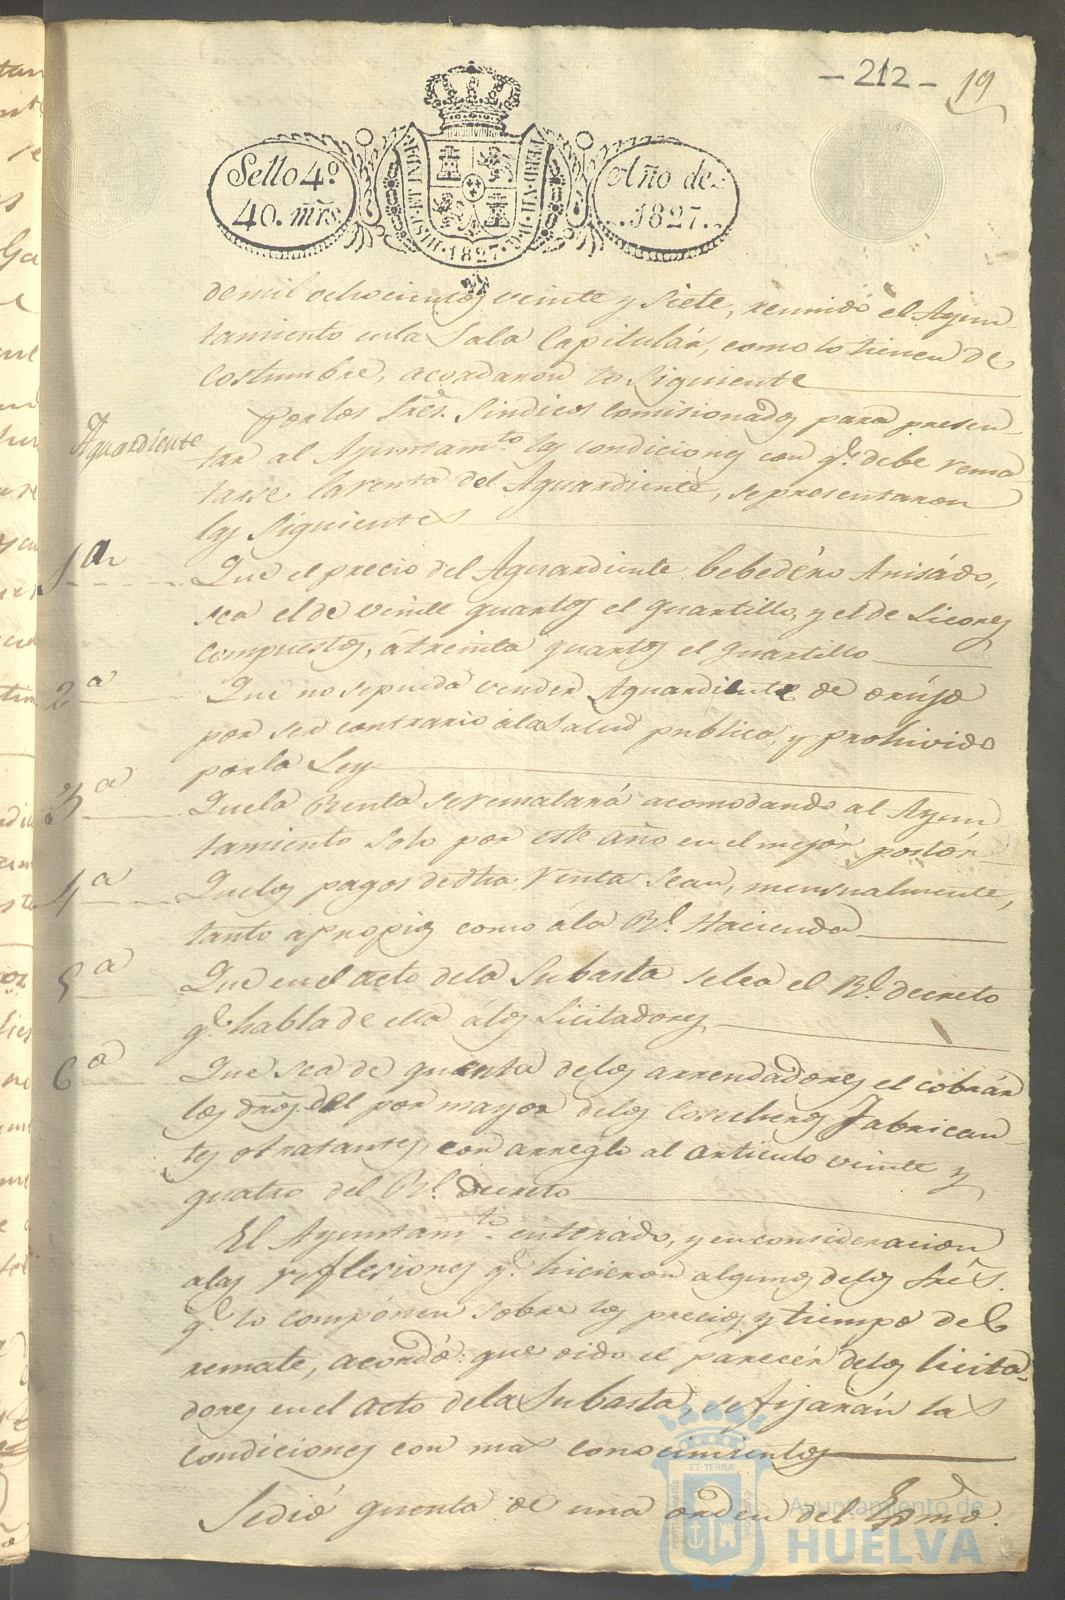 - 212 - 19
Sello 4º
40. mrs.
HISP. ET IND. R.
FERD. VII. D. G.
1827
Año de
1827.
de mil ochocientos veinte y siete, reunido el Ayun
tamiento en la Sala Capitulár, como lo tienen de
costumbre, acordaron lo siguiente
Aguardiente
Por los Sres. Sindicos comisionados para presen
tar al Ayuntamto. las condiciones con qe. debe rema
tarse la renta del Aguardiente, se presentaron
las siguientes
1a
Que el precio del Aguardiente bebedéro Anisádo,
sea el de veinte quartos el quartillo, y el de Licores
compuestos, á treinta quartos el quartillo
2a
Que no se pueda vender Aguardiente de orújo
por ser contrario á la salud publica, y prohivido
por la Ley
3a
Que la Renta se rematará acomodando al Ayun
tamiento solo por este año en el mejór postór
4a
Que los pagos de dha. renta sean, mensualmente,
tanto a propios como á la Rl. Hacienda
5a
Que en el acto de la Subasta se lea el Rl. decreto
qe. habla de ella á los Licitadores
6a
Que sea de quenta de los arrendadores el cobrár
los dros. del por mayor de los Cosecheros Fabrican
tes o tratantes, con arreglo al articulo veinte y
quatro del Rl. decreto
El Ayuntamto. enterado, y en consideracion
a las reflesiones qe. hicieron algunos de los Sres.
qe. lo compónen sobre los precios y tiempo del
remate, acordó: que oido el parecér de los licita-
dores en el acto de la Subasta, se fijarán las
condiciones con mas conocimientos
Se dió quenta de una orden del Exmo.
Ayuntamiento de
HUELVA